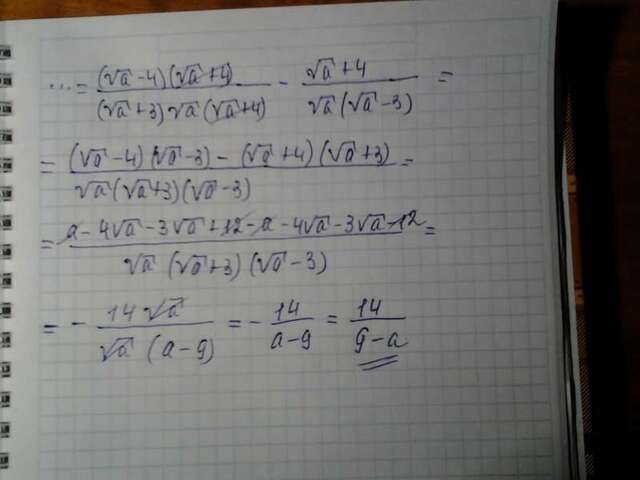 ... = (√a - 4)(√a + 4) / (√a + 3)√a(√a + 4) - √a + 4 / √a(√a - 3) =
= (√a - 4)(√a - 3) - (√a + 4)(√a + 3) / √a(√a + 3)(√a - 3) =
= a - 4√a - 3√a + 12 - a - 4√a - 3√a - 12 / √a(√a + 3)(√a - 3) =
= - 14√a / √a(a - 9) = - 14 / a - 9 = 14 / 9 - a